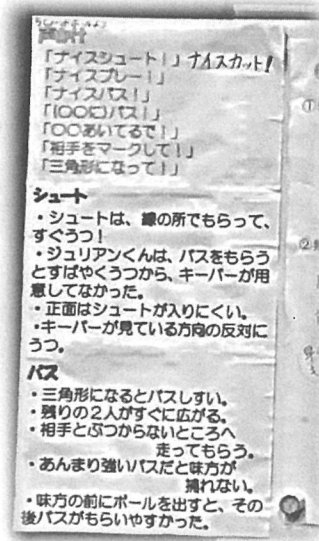 「ナイスシュート!」ナイスカット!
「ナイスプレー!」
「ナイスパス!」
「(〇〇に)パス!」
「〇〇あいてるで!」
「相手をマークして!」
「三角形になって!」
シュート
・シュートは、線の所でもらって、
すぐうつ!
・ジュリアンくんは、パスをもらう
とすばやくうつから、キーパーが用
意してなかった。
・正面はシュートが入りにくい。
・キーパーが見ている方向の反対に
うつ。
パス
・三角形になるとパスしすい。
・残りの2人がすぐに広がる。
・相手とぶつからないところへ
走ってもらう。
・あんまり強いパスだと味方が
捕れない。
・味方の前にボールを出すと、その
後パスがもらいやすかった。
①
②